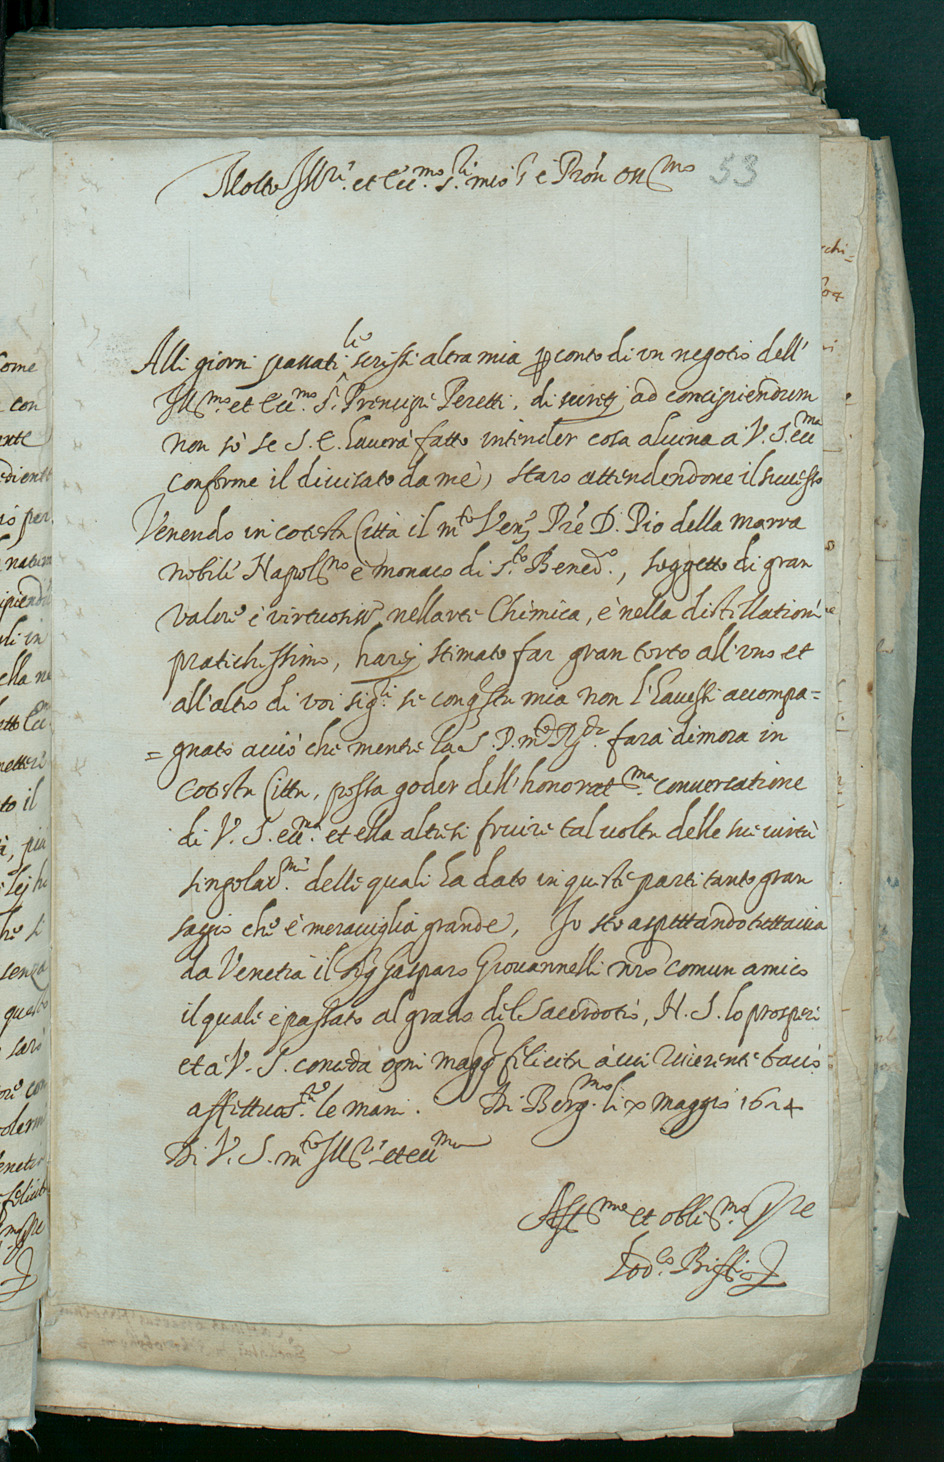 Molto Ill.re et Ecc.mo S.r mio S.r e Prón oss.mo 53
Alli giorni passati li scrissi altra mia per conto di un negotio dell'
Ill.mo et Ecc.mo S.r Principe Peretti, di ad concipiendum
non sò se S. E. haverà fatto intender cosa alcuna a V. S. ecc.ma
conforme il divisato da mè, starò attendendone il successo
Venendo in cotesta Città il m.to Ven. Pre D. Pio della Marra
nobile Napol.no e monaco di S.to Bened.o, soggetto di gran
valore e virtuosiss.o nell arte Chimica, e nella distillationi
pratichissimo, harei stimato far gran torto all'uno et
all'altro di voi sig.ri se con questa mia non l'havessi accompa=
=gnato acciò che mentre la S. P. m.to R.da farà dimora in
cotesta Città, possa goder dell'honorat.ma conversatione
di V. S. ecc.ma et ella altresi fruire tal volta delle sue virtù
singolar.me delle quali ha dato in queste parti tanto gran
saggio che è meraviglia grande, Io sto aspettando tuttavia
da Venetia il Sig Gasparo Giovannelli nro comun amico
il quale è passato al grado del Sacerdotio, N. S. lo prosperi
et à V. S. conceda ogni magg.r felicita à cui riverente bacio
affettuos.te le mani. Di Berg.mo li x Maggio 1624
Di V. S. m.to Ill.re et ecc.ma
Aff.mo et obli.mo Sre
Lod.co Biffi